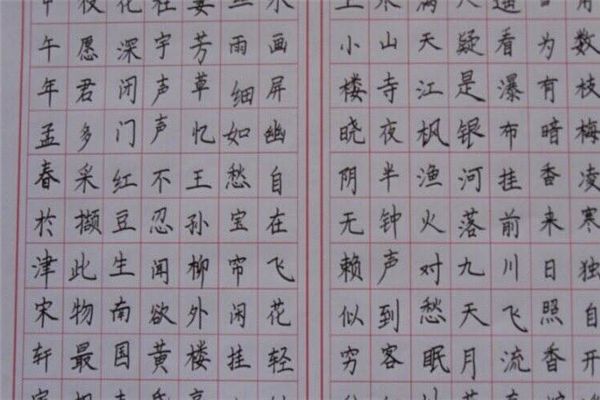 角数枝梅凌寒独自开
为有暗香来日照香
遥看瀑布挂前川飞流
疑是银河落九天月
满天江枫渔火对愁眠
山寺夜半钟声到客
上小楼晓阴无赖似穷
水画屏幽自在飞花轻
丝雨细如愁宝帘闲挂
萋芳草忆王孙柳外楼
杜宇声声不忍闻欲黄
花深闭门红豆生南国
枝愿君多采撷此物最
甲午年孟春於津宋轩